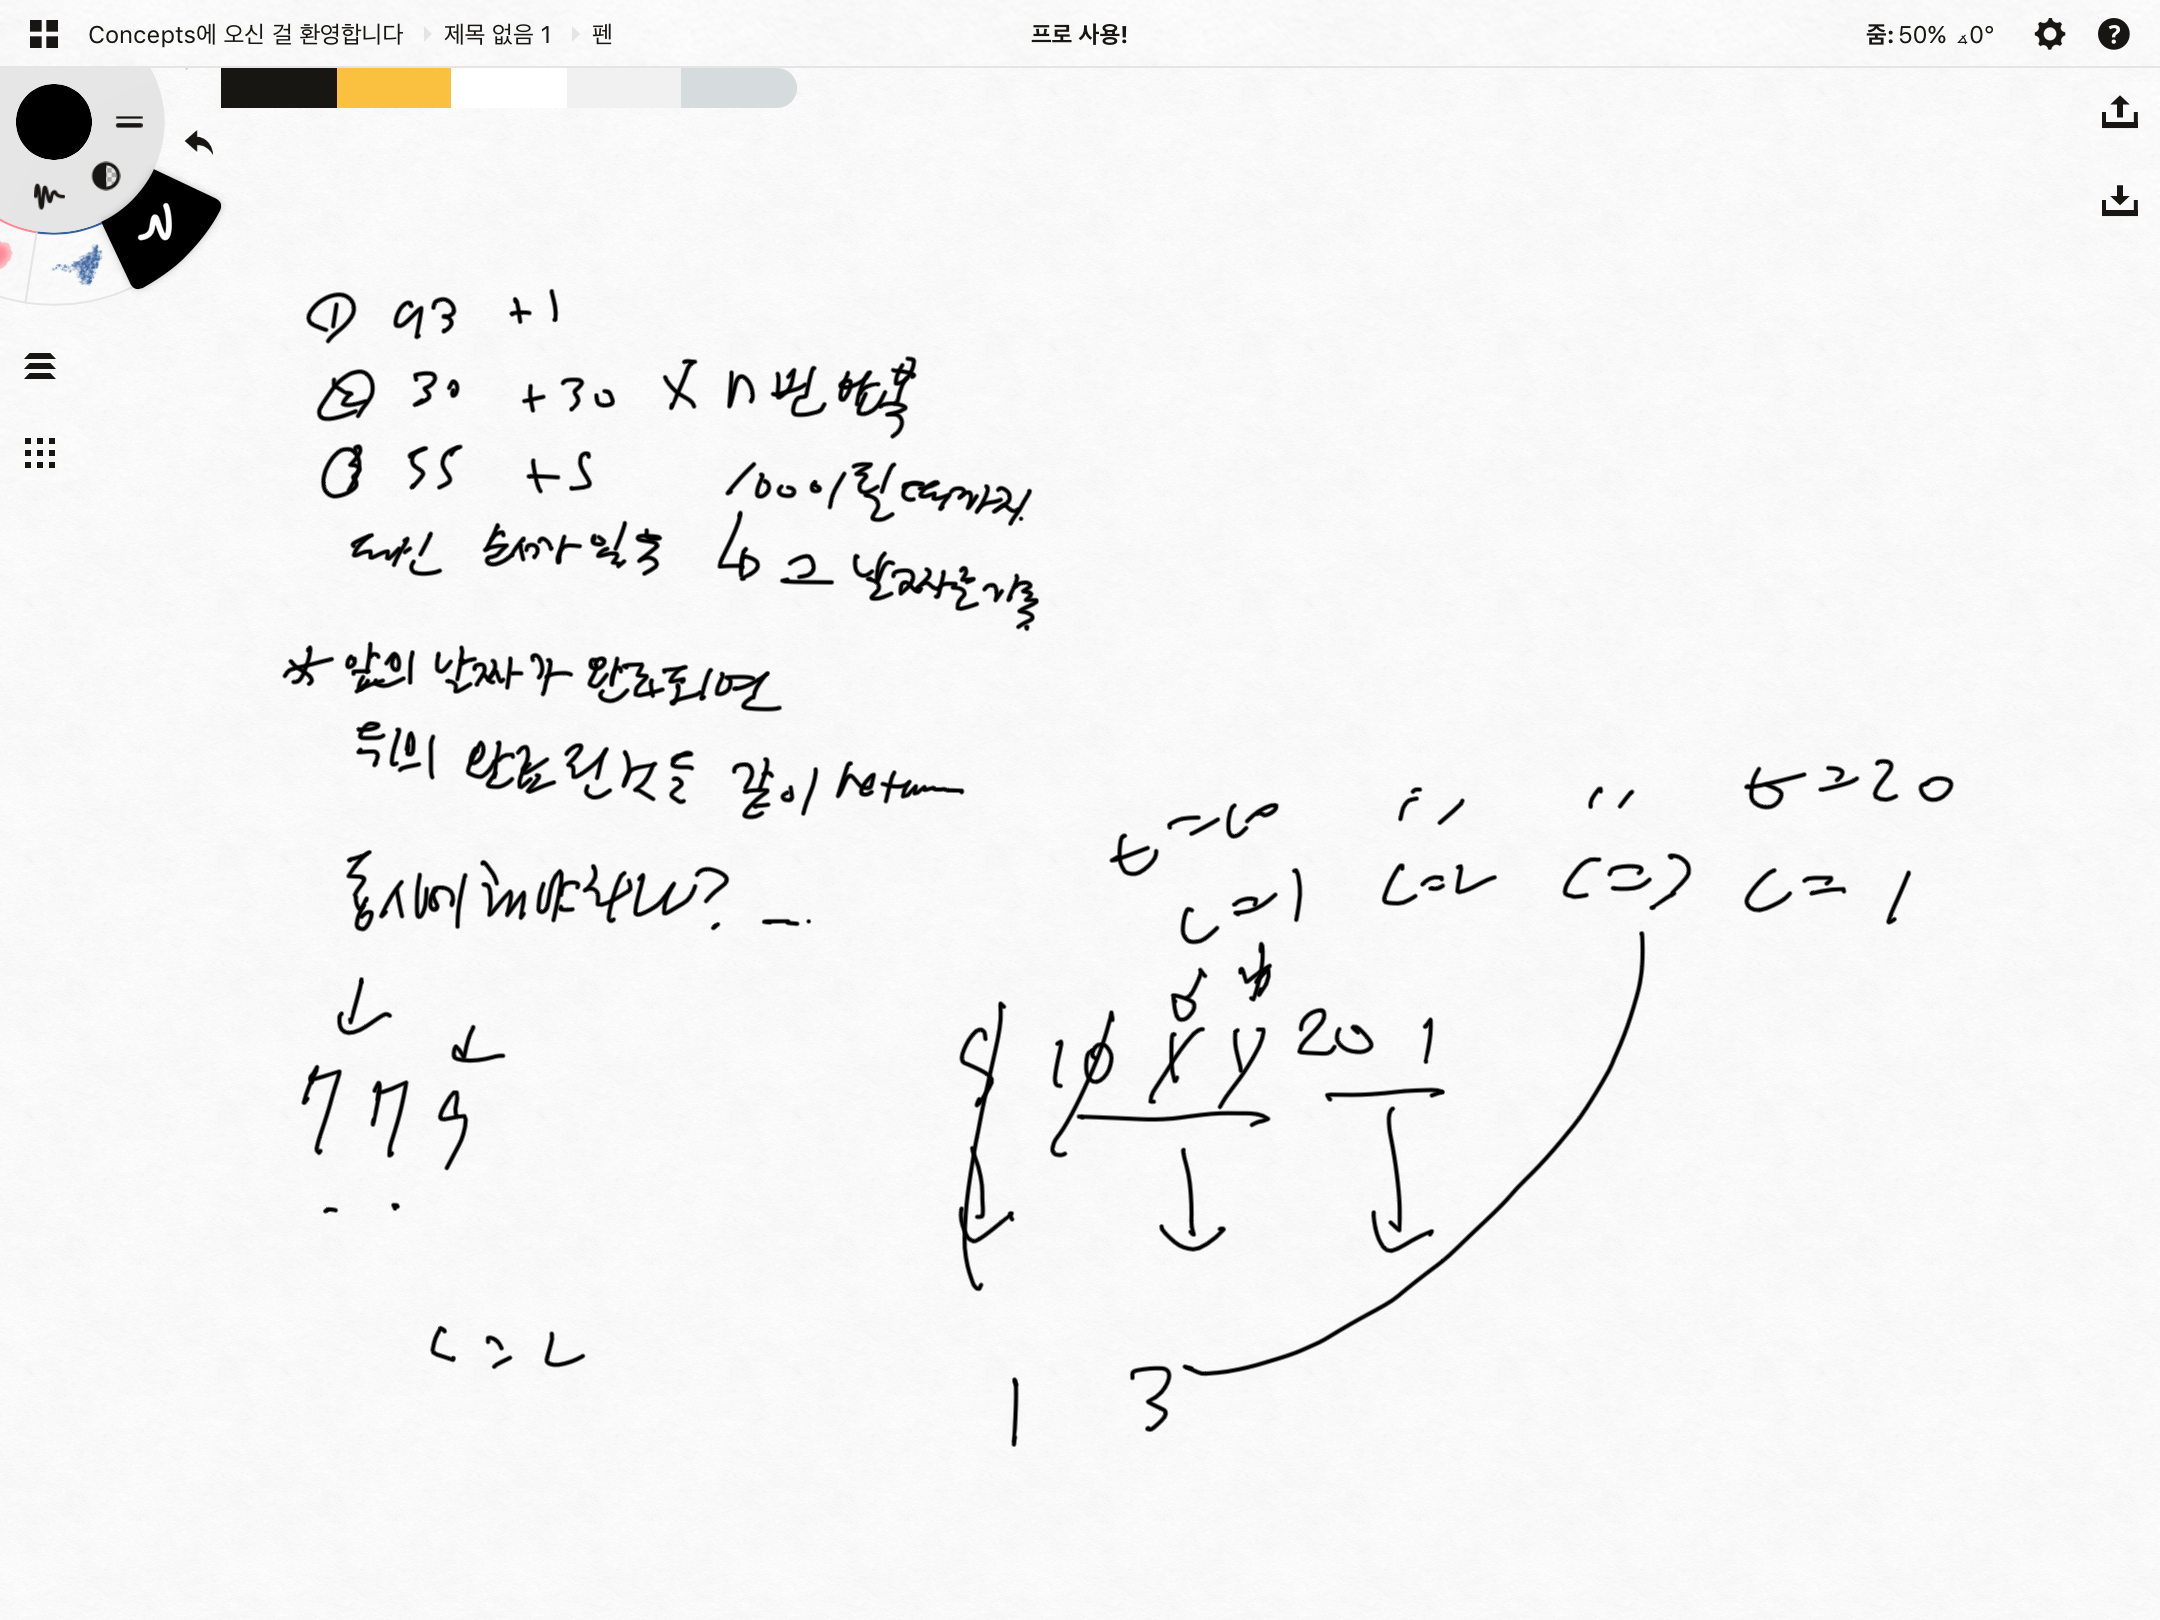 Concepts에 오신 걸 환영합니다 제목 없음 1 펜
프로 사용!
줌: 50% ⦟0°
① 93 +1
② 30 +30 X n번 반복
③ 55 +5 100이 될 때까지
매인 숫자 일축 ↳ 그 날짜를 기록
* 앞의 날짜가 완료되면
뒤의 완료된 것들 같이 return
동시에 해야하나? ...
7 7 9
c = 2
t = 10 " " t = 20
c = 1 c = 2 c = 3 c = 1
5 10 X Y 20 1
1 3